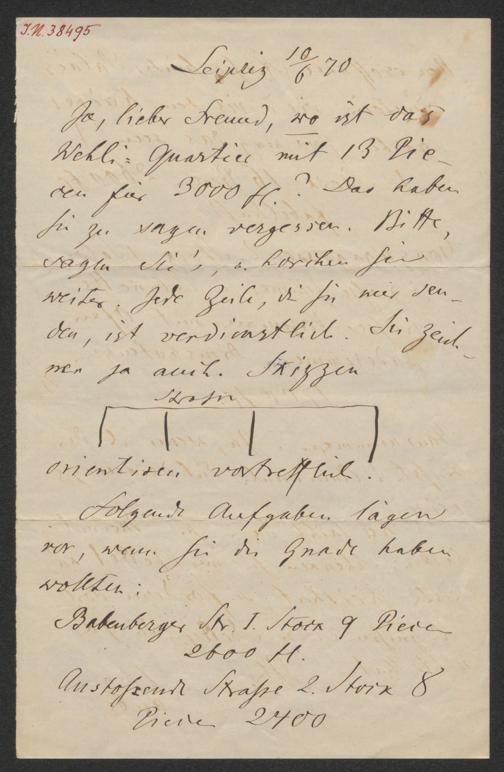 I.N. 38495
Leipzig 10/6 70
Ja, lieber Freund, wo ist das
Wehli-Quartier mit 13 Pie-
cen für 3000 fl.? Das haben
Sie zu sagen vergessen. Bitte,
sagen Sie's, u. horchen Sie
weiter. Jede Zeile, die Sie mir sen-
den, ist verdienstlich. Sie zeich-
nen ja auch. Skizzen
Straße
orientiren vortrefflich.
Folgende Aufgaben lägen
vor, wenn Sie die Gnade haben
wollten:
Babenberger Str I. Stock 9 Piecen
2600 fl.
Anstoßende Straße 2. Stock 8
Piecen 2400